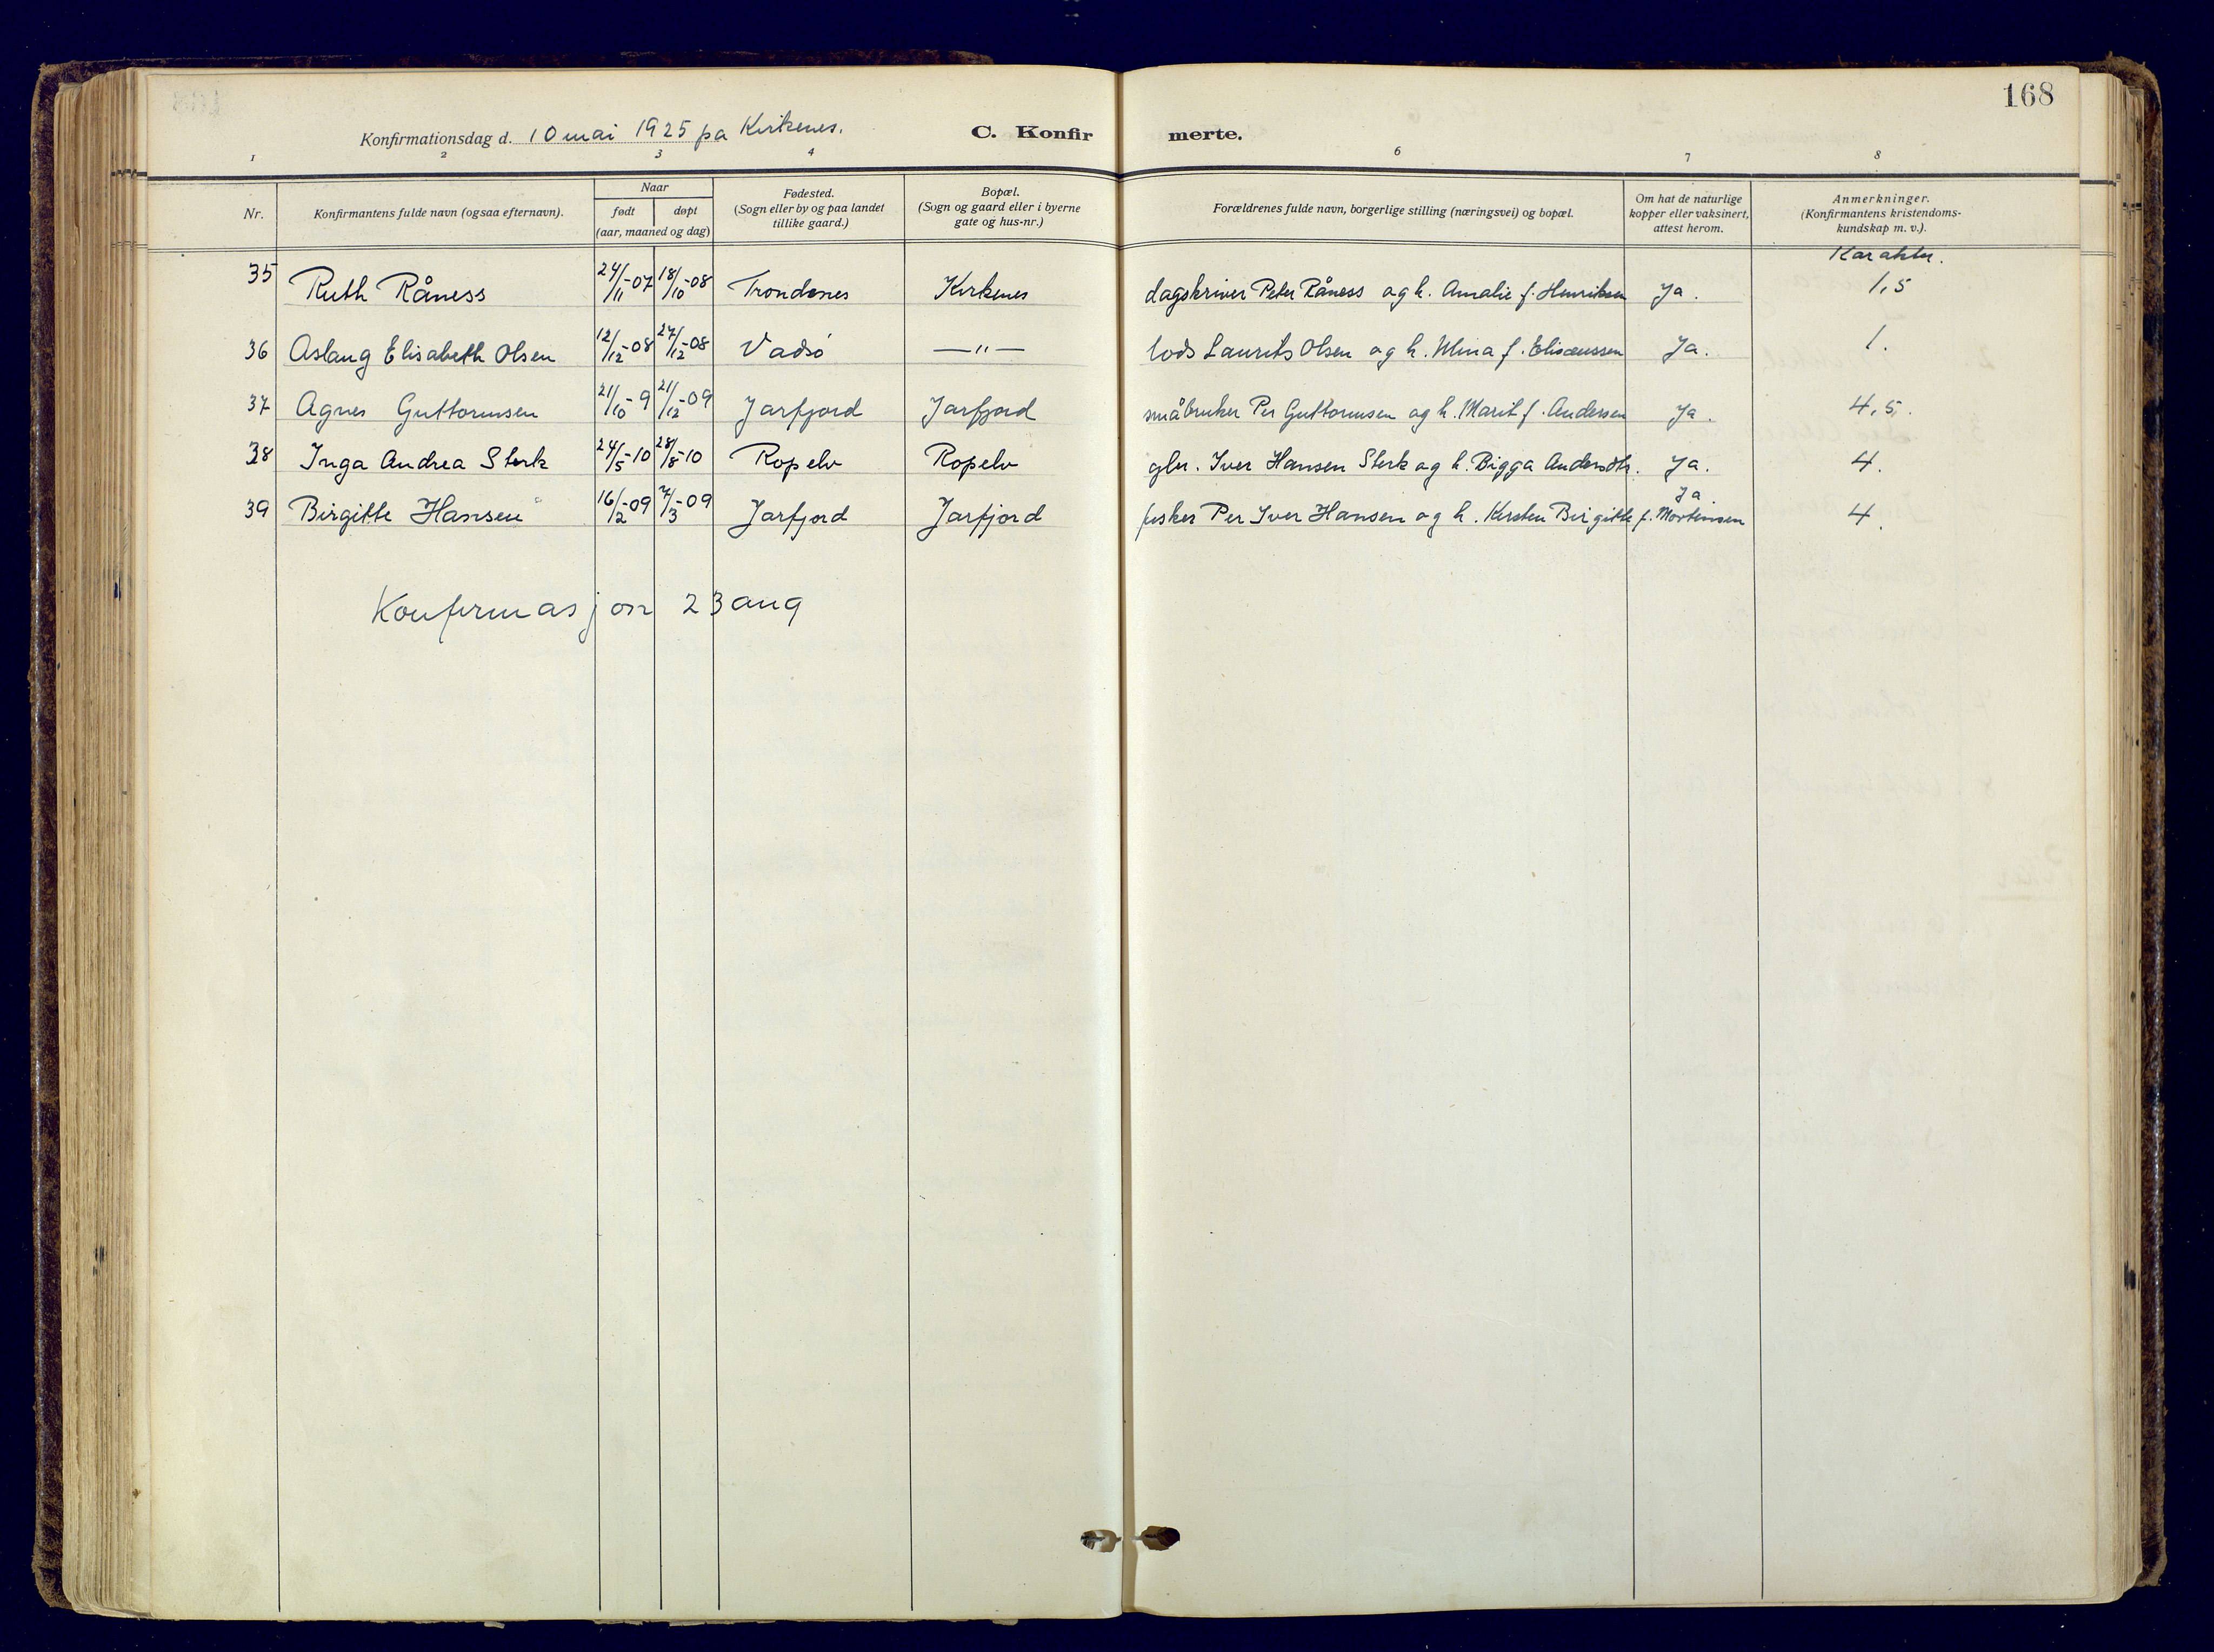 168
Konfirmationsdag d. 10 mai 1925 på Kirkenes.
C. Konfirmerte.
1 2 3 4 6 7 8
Nr.
Konfirmantens fulde navn (ogsaa efternavn).
Naar
født
døpt
(aar, maaned og dag)
Fødested.
(Sogn eller by og paa landet
tillike gaard.)
Bopæl.
(Sogn og gaard eller i byerne
gate og hus-nr.)
Forældrenes fulde navn, borgerlige stilling (næringsvei) og bopæl.
Om hat de naturlige
kopper eller vaksinert,
attest herom.
Anmerkninger.
(Konfirmantens kristendoms-
kundskap m. v.).
Karakter.
35 Ruth Råness 24/11-07 18/10-08 Trondenes Kirkenes dagskriver Peter Råness og h. Amalie f. Henriksen Ja. 1,5
36 Aslaug Elisabeth Olsen 12/12-08 27/12-08 Vadsö —"— lods Laurits Olsen og h. f. Elisæussen Ja. 1.
37 Agnes Guttormsen 21/10-9 21/12-09 Jarfjord Jarfjord småbruker Per Guttormsen og h. Marit f. Andersen Ja. 4,5.
38 Inga Andrea Sterk 24/5-10 28/8-10 Ropelv Ropelv gbr. Iver Hansen Sterk og h. Bigga Andersdtr. Ja. 4.
39 Birgitte Hansen 16/2-09 7/3-09 Jarfjord Jarfjord fisker Per Iver Hansen og h. Kirsten Birgitte f. Mortensen Ja 4.
Konfirmasjon 23 aug